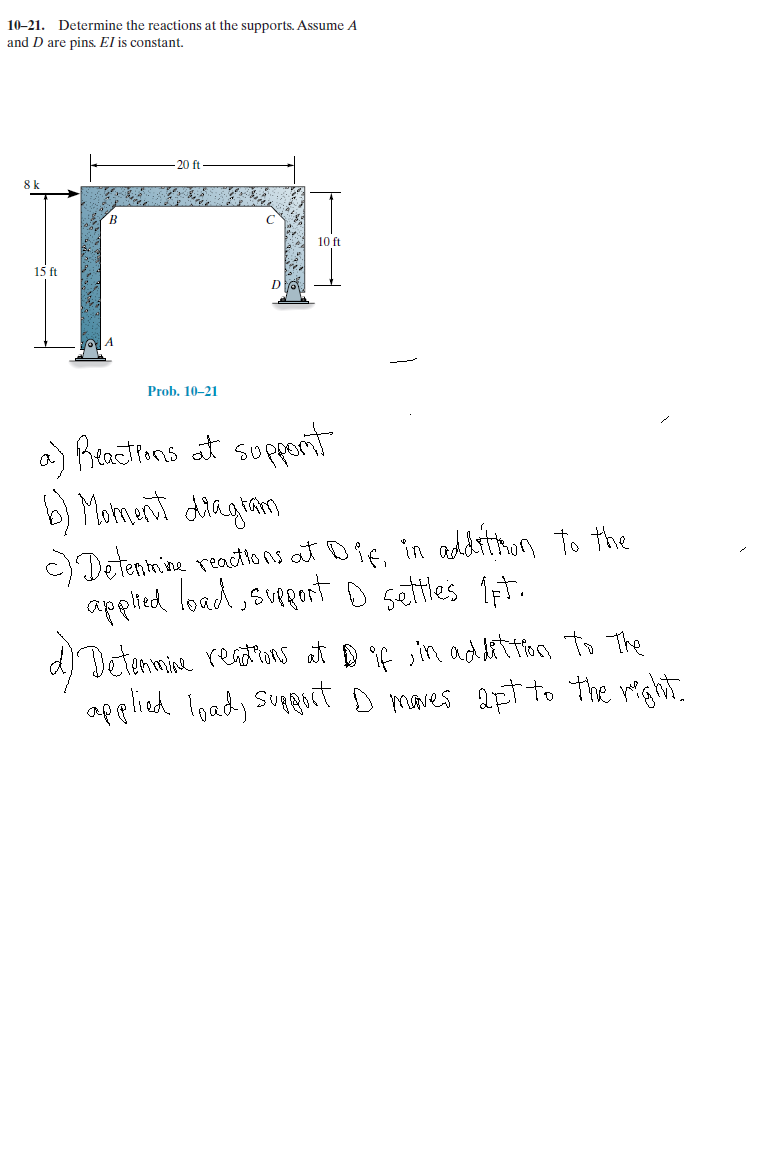 10–21. Determine the reactions at the supports. Assume A
and D are pins. EI is constant.
20 ft
8 k
B
C
10 ft
15 ft
D
A
Prob. 10–21
a) Reactions at support
b) Moment diagram
c) Determine reactions at D if, in addittion to the
applied load, support D settles 1ft.
d) Determine reactions at D if, in addittion to the
applied load, support D moves 2ft to the right.